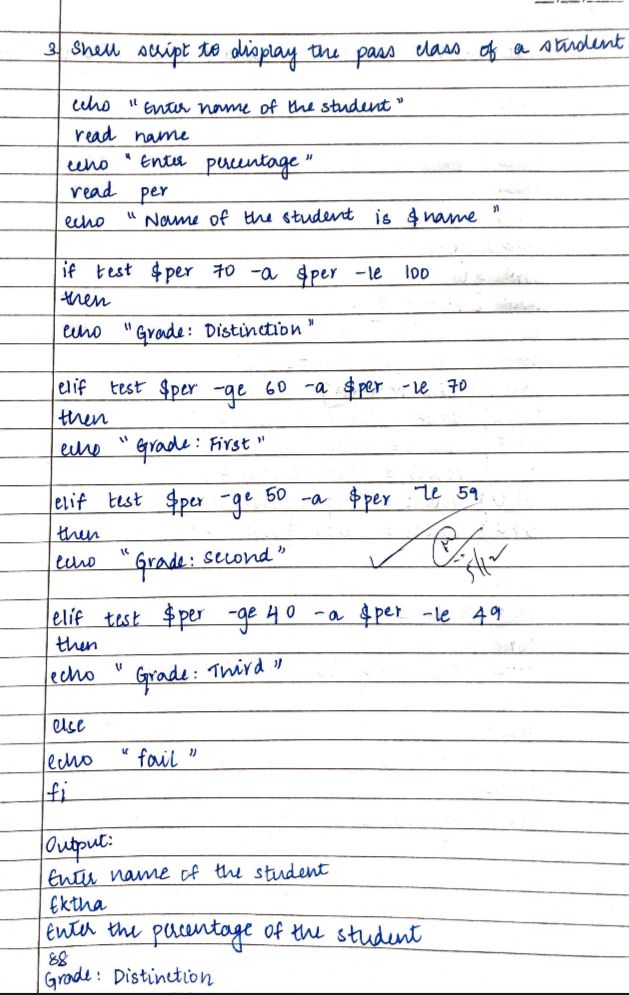 3. Shell script to display the pass class of a student
echo "Enter name of the student"
read name
echo "Enter percentage"
read per
echo "Name of the student is $name"
if test $per 70 -a $per -le 100
then
echo "Grade: Distinction"
elif test $per -ge 60 -a $per -le 70
then
echo "Grade: First"
elif test $per -ge 50 -a $per -le 59
then
echo "Grade: Second"
elif test $per -ge 40 -a $per -le 49
then
echo "Grade: Third"
else
echo "fail"
fi
Output:
Enter name of the student
Ektha
Enter the percentage of the student
88
Grade: Distinction